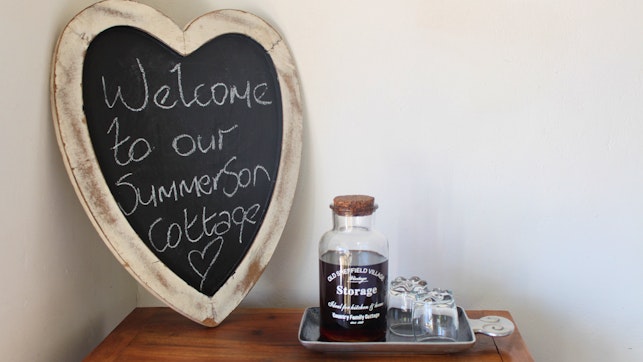 Welcome
to our
SummerSon
Cottage
OLD SHEFFIELD VILLAGE
Vintage
Storage
Ideal for kitchen & home
Country Family Cottage